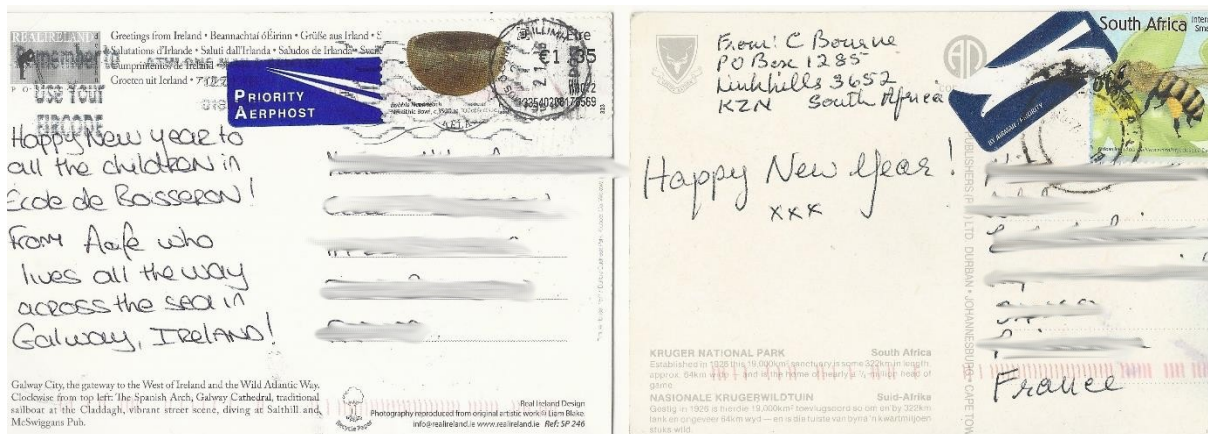 REALIRELAND
Greetings from Ireland • Beannachtaí óÉirinn • Grüße aus Irland • S
Salutations d'Irlande • Saluti dall'Irlanda • Saludos de Irlanda •
Cumprimentos de Irland
Groeten uit Ierland •
Remember to
use your
EIRCODE
PRIORITY
AERPHOST
Éire
€1.35
Happy New Year to
all the children in
École de Boisseron!
From Aoife who
lives all the way
across the sea in
Galway, IRELAND!
Galway City, the gateway to the West of Ireland and the Wild Atlantic Way.
Clockwise from top left: The Spanish Arch, Galway Cathedral, traditional
sailboat at the Claddagh, vibrant street scene, diving at Salthill and,
McSwiggans Pub.
Recycle Paper
Real Ireland Design
Photography reproduced from original artwork © Liam Blake.
info@realireland.ie www.realireland.ie Ref: SP 246
From: C Bourne
PO Box 1285
Linkhills 3652
KZN South Africa
South Africa
BY AIRMAIL/PRIORITY
Happy New Year!
xxx
KRUGER NATIONAL PARK South Africa
Established in 1926 this 19,000km² sanctuary is some 322km in length,
approx. 64km and is the home of nearly a ¼ million head of
game.
NASIONALE KRUGERWILDTUIN Suid-Afrika
Gestig in 1926 is hierdie 19,000km² toevlugsoord so om en by 322km
lank en ongeveer 64km wyd — en is die tuiste van byna 'n kwartmiljoen
stuks wild.
PUBLISHERS (P LTD. DURBAN • JOHANNESBURG • CAPE TOW
France